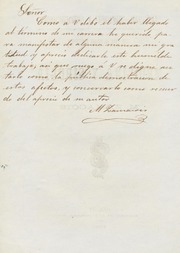 Señor.
Como a V debo el haber llegado
al termino de mi carrera he querido pa
ra manifestar de alguna manera mi gra
titud y aprecio dedicarle este humilde
trabajo, asi que ruego a V se digne, acep
tarlo como la publica demostracion de
estos afectos, y conservarlo como recuer
do del aprecio de su autor